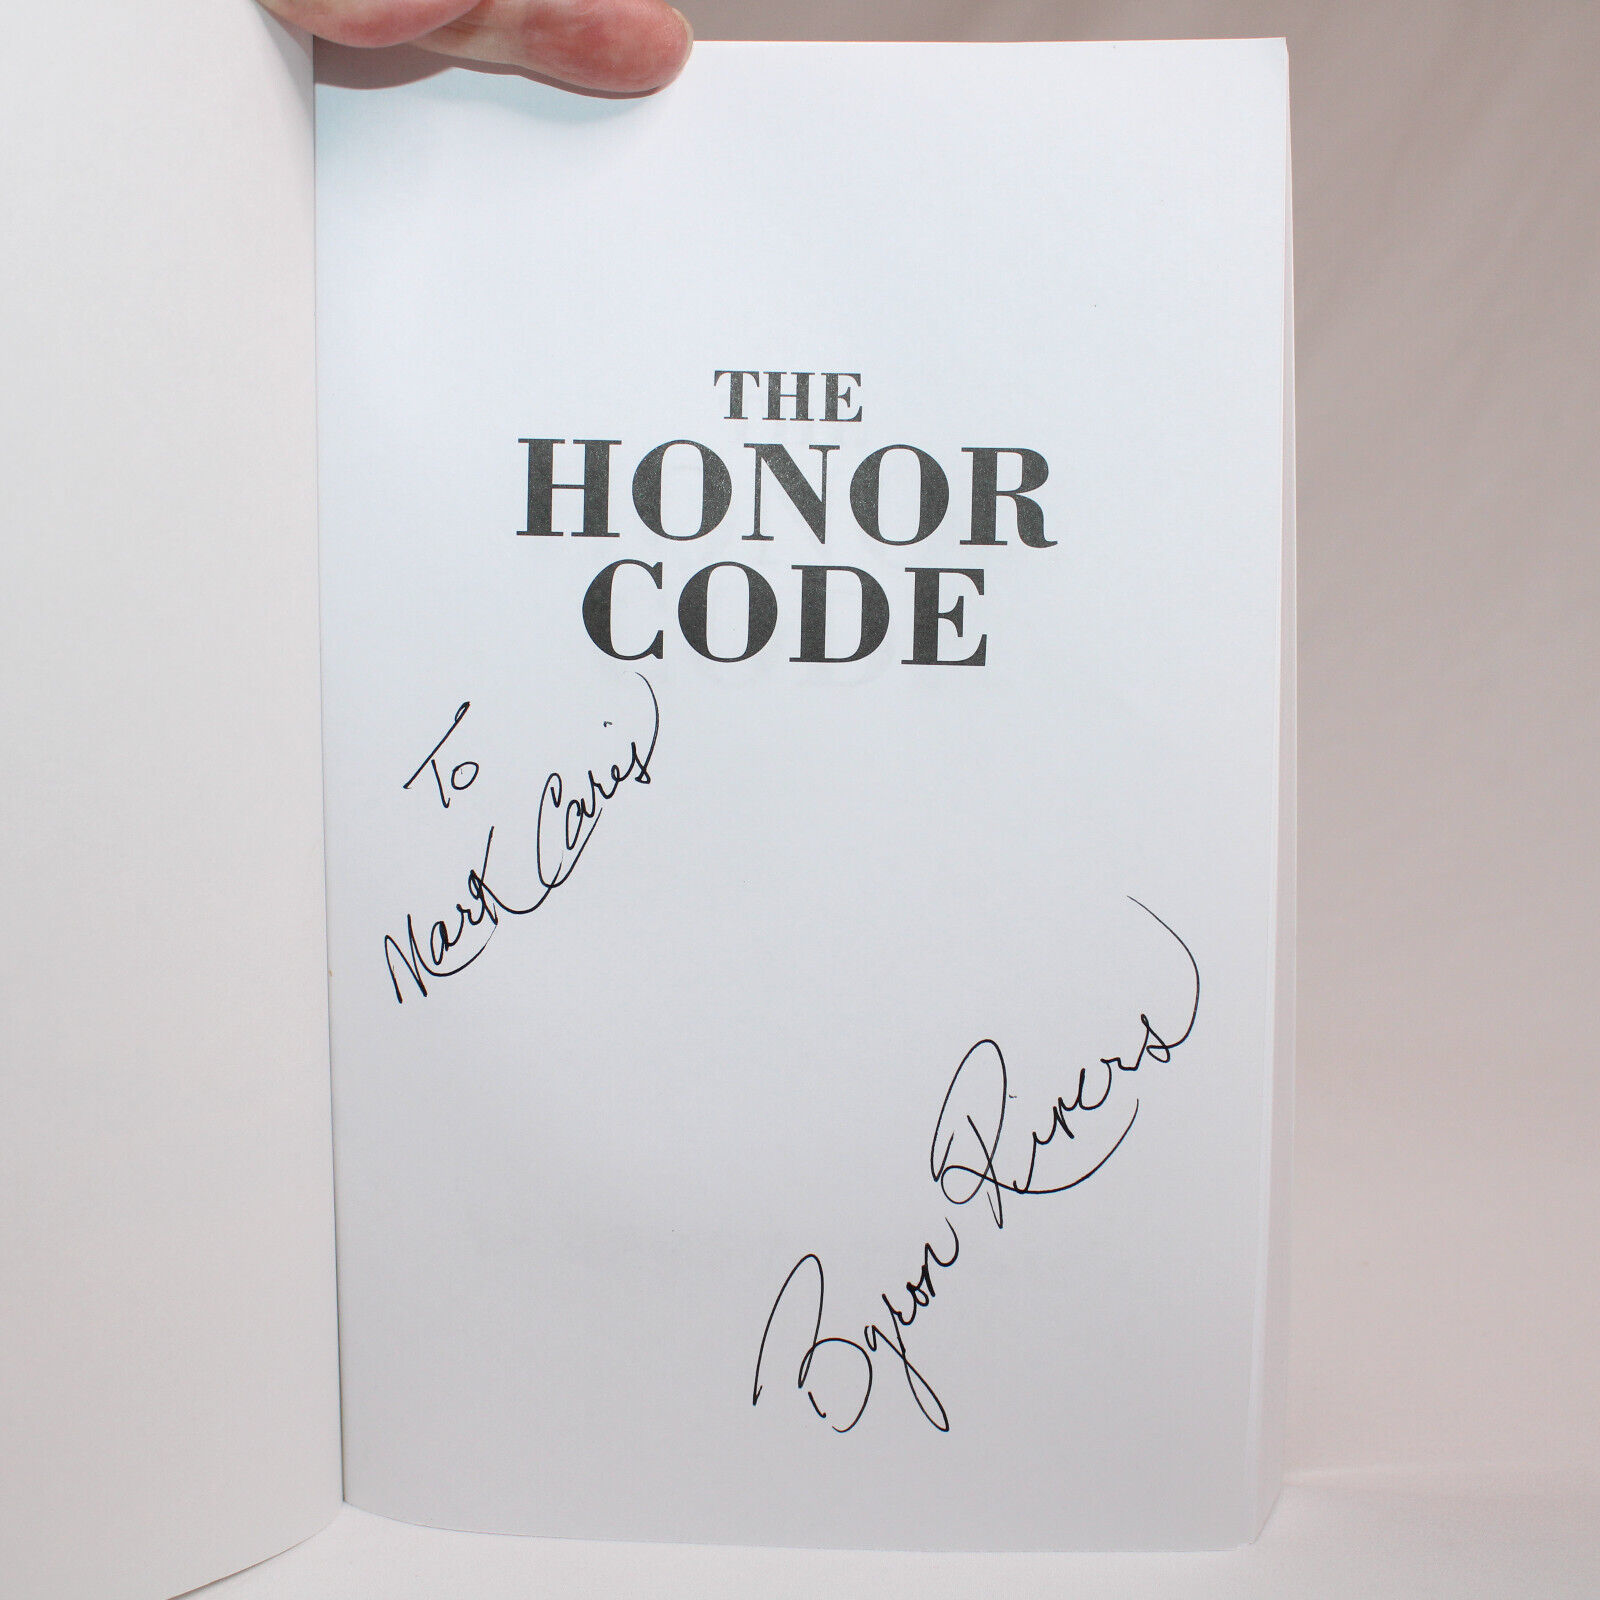 THE
HONOR
CODE
To
Mark Caris
Byron Rivers